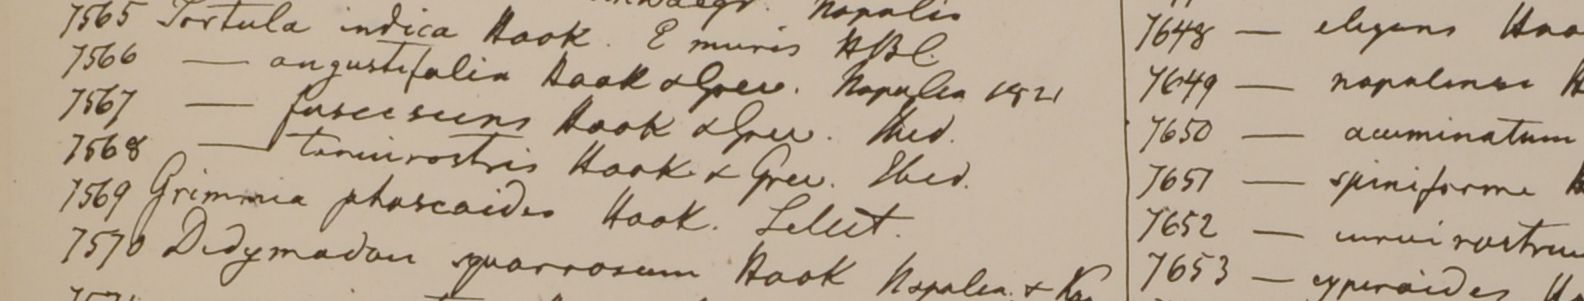 Napalia
7565 Tortula indica Hook. E muris HBC.
7566 — angustifolia Hook & Grev. Napalia 1821
7567 — fuscescens Hook & Grev. Ibid.
7568 — tenuirostris Hook & Grev. Ibid.
7569 Grimmia phascoides Hook. Silhet.
7570 Didymodon squarrosum Hook Napalia &
7648 — elegans
7649 — napalense H
7650 — acuminatum
7651 — spiniforme H
7652 — curvirostrum
7653 — cyperoides